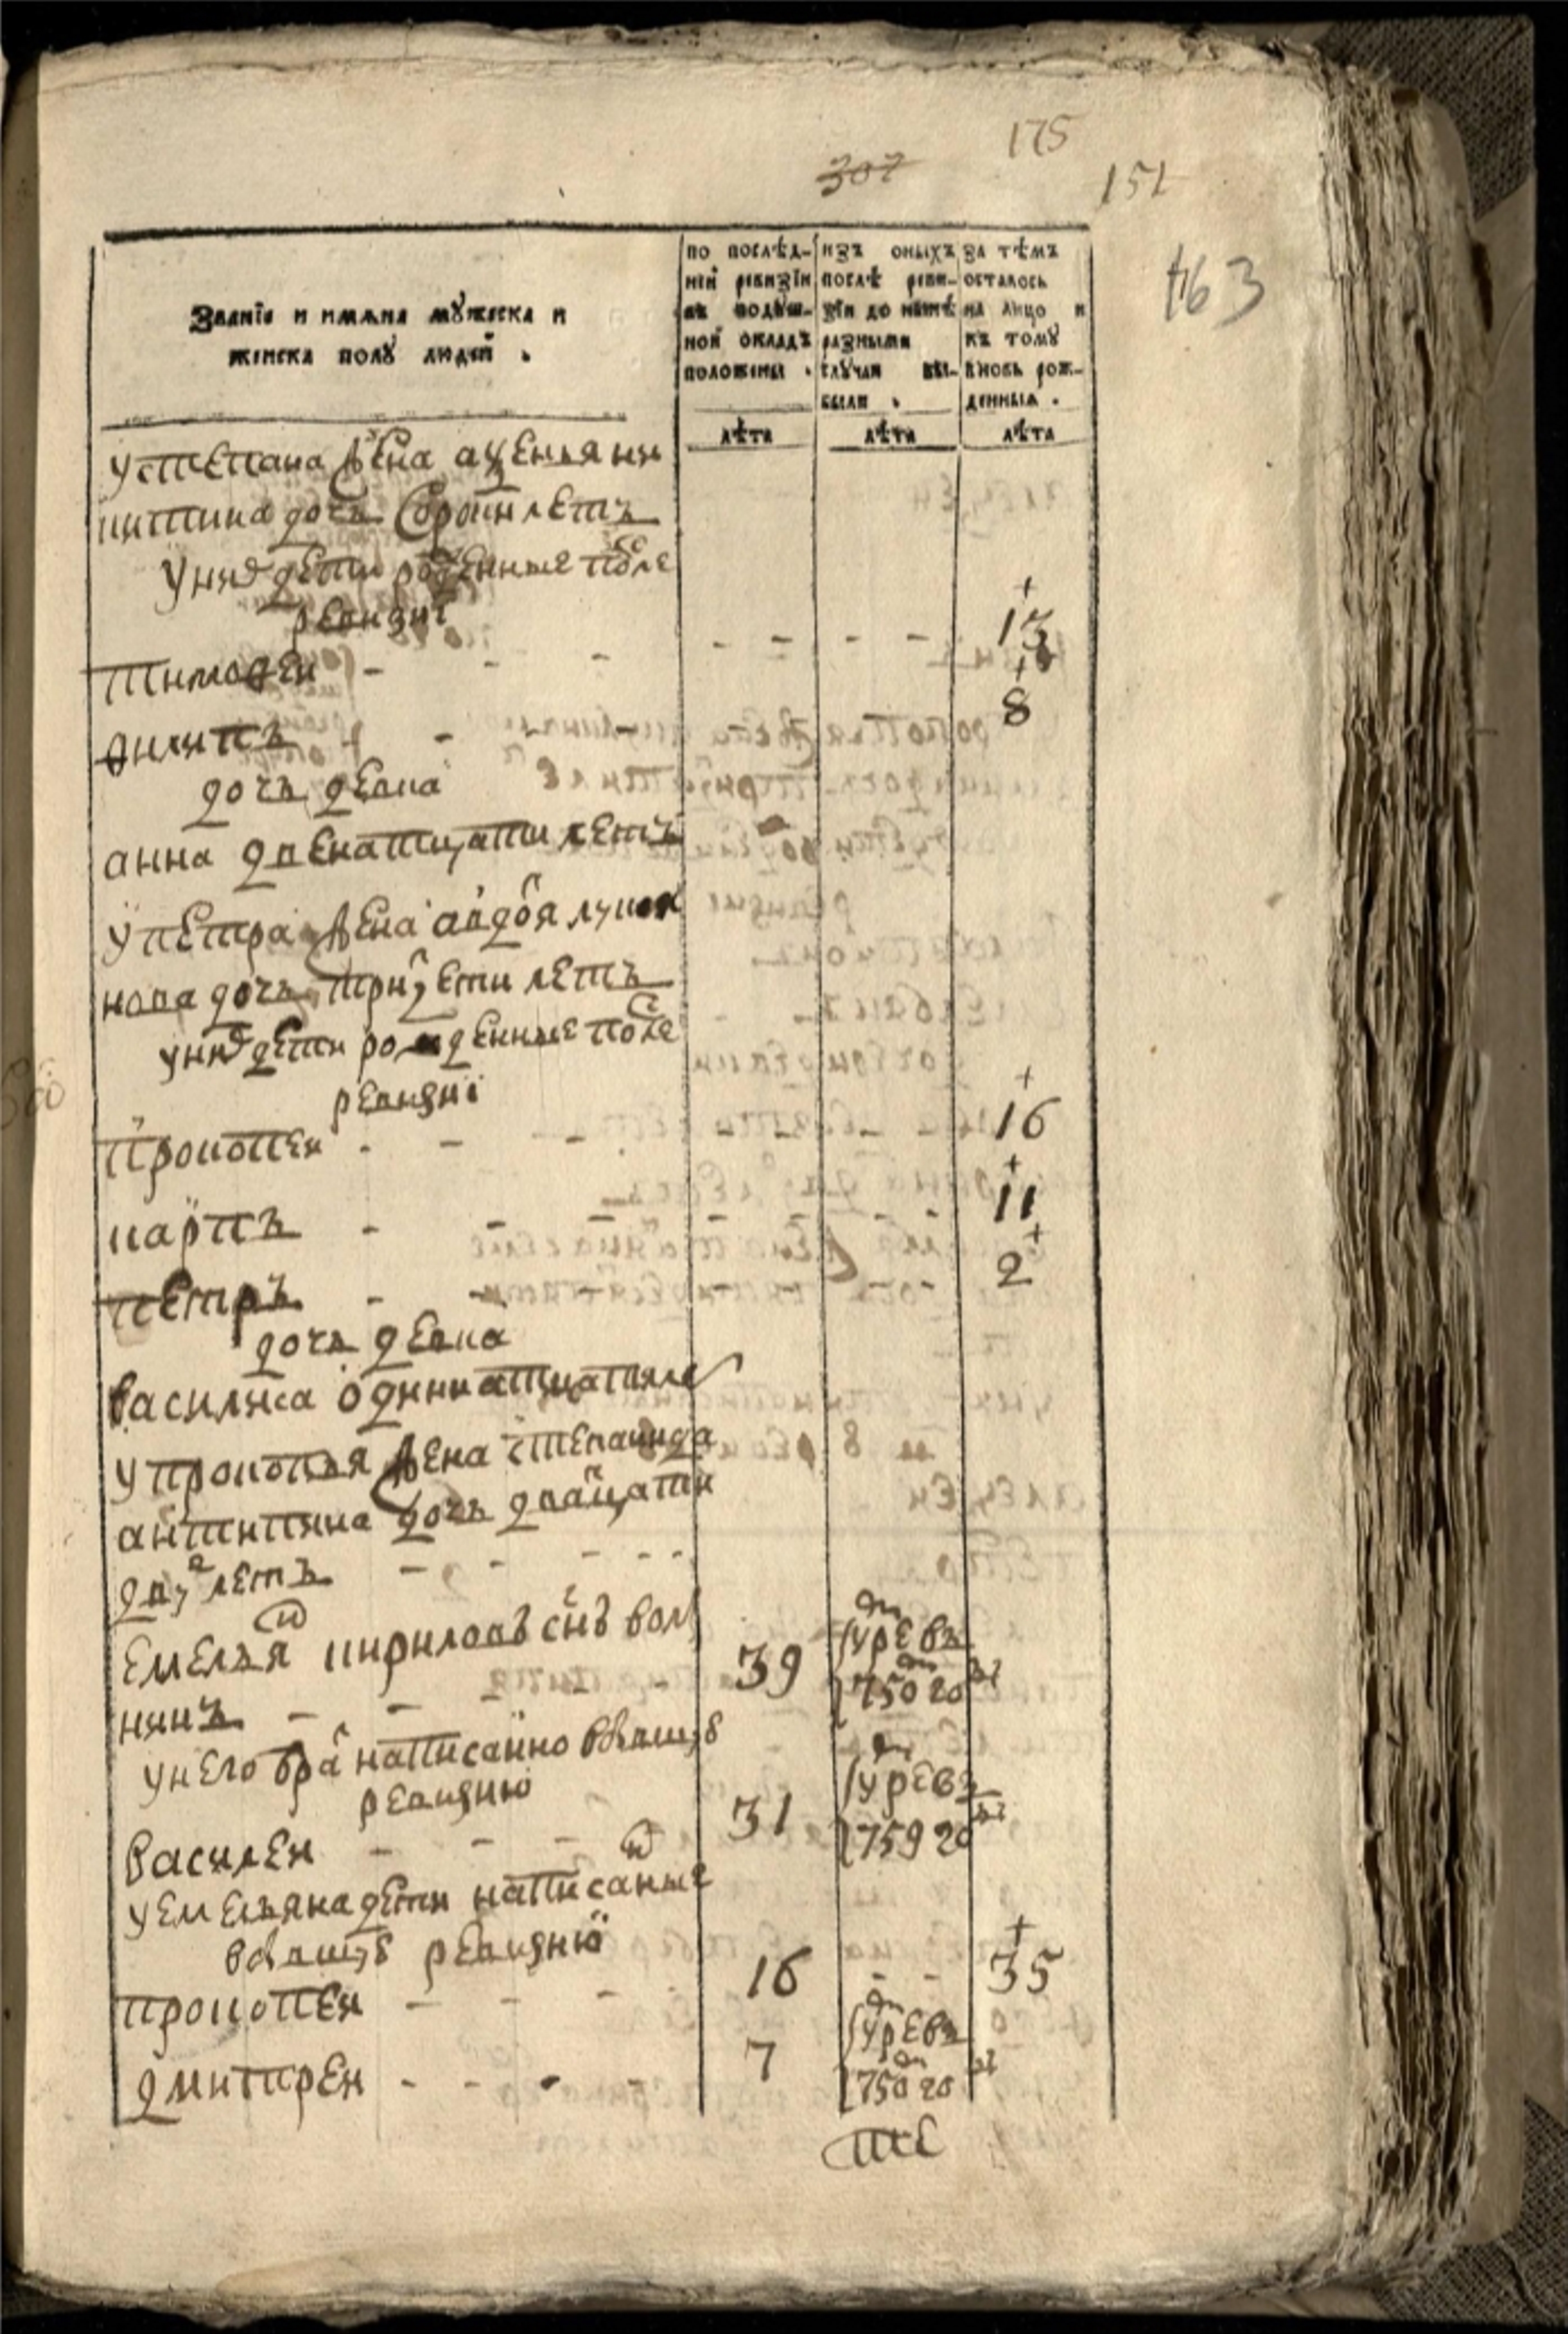 175
307
151
163
Званїе и имѧна мꙋжеска и
женска полꙋ людей .
по послѣд-
ней ревизїи
въ подꙋш-
ной окладъ
положены .
лѣта
изъ оныхъ
послѣ реви-
зїи до нынѣ
разными
слꙋчаи вы-
были .
лѣта
за тѣмъ
осталось
на лицо и
къ томꙋ
вновь рож-
денныя .
лѣта
устепана жена аксенья ни
китина дочь сорок летъ
у них дети рожденные после
ревизиї
тимофеи - - - - - - - 13
филипъ - 8
дочь девка
анна двенатцати летъ
у петра жена авдотя лукия
нова дочь трицети летъ
у них дети рожденные после
ревизиї
прокопеи - - - 16
карпъ - - - - - - 11
петръ - - 2
дочь девка
василиса одиннатцати ле
у прокопья жена степанида
антипина дочь дватцати
двух летъ - - - - -
емельян кирилов сынъ вол 39 умре въ
нинъ - - - 1750 году
у него брат написанно в бывшую
ревизию
василеи - - - 31 умре въ 1759 году
у емельяна дети написаные
в бывшую ревизию
прокопеи - - - 16 - - 35
дмитреи - - - - 7 умре въ 1750 году